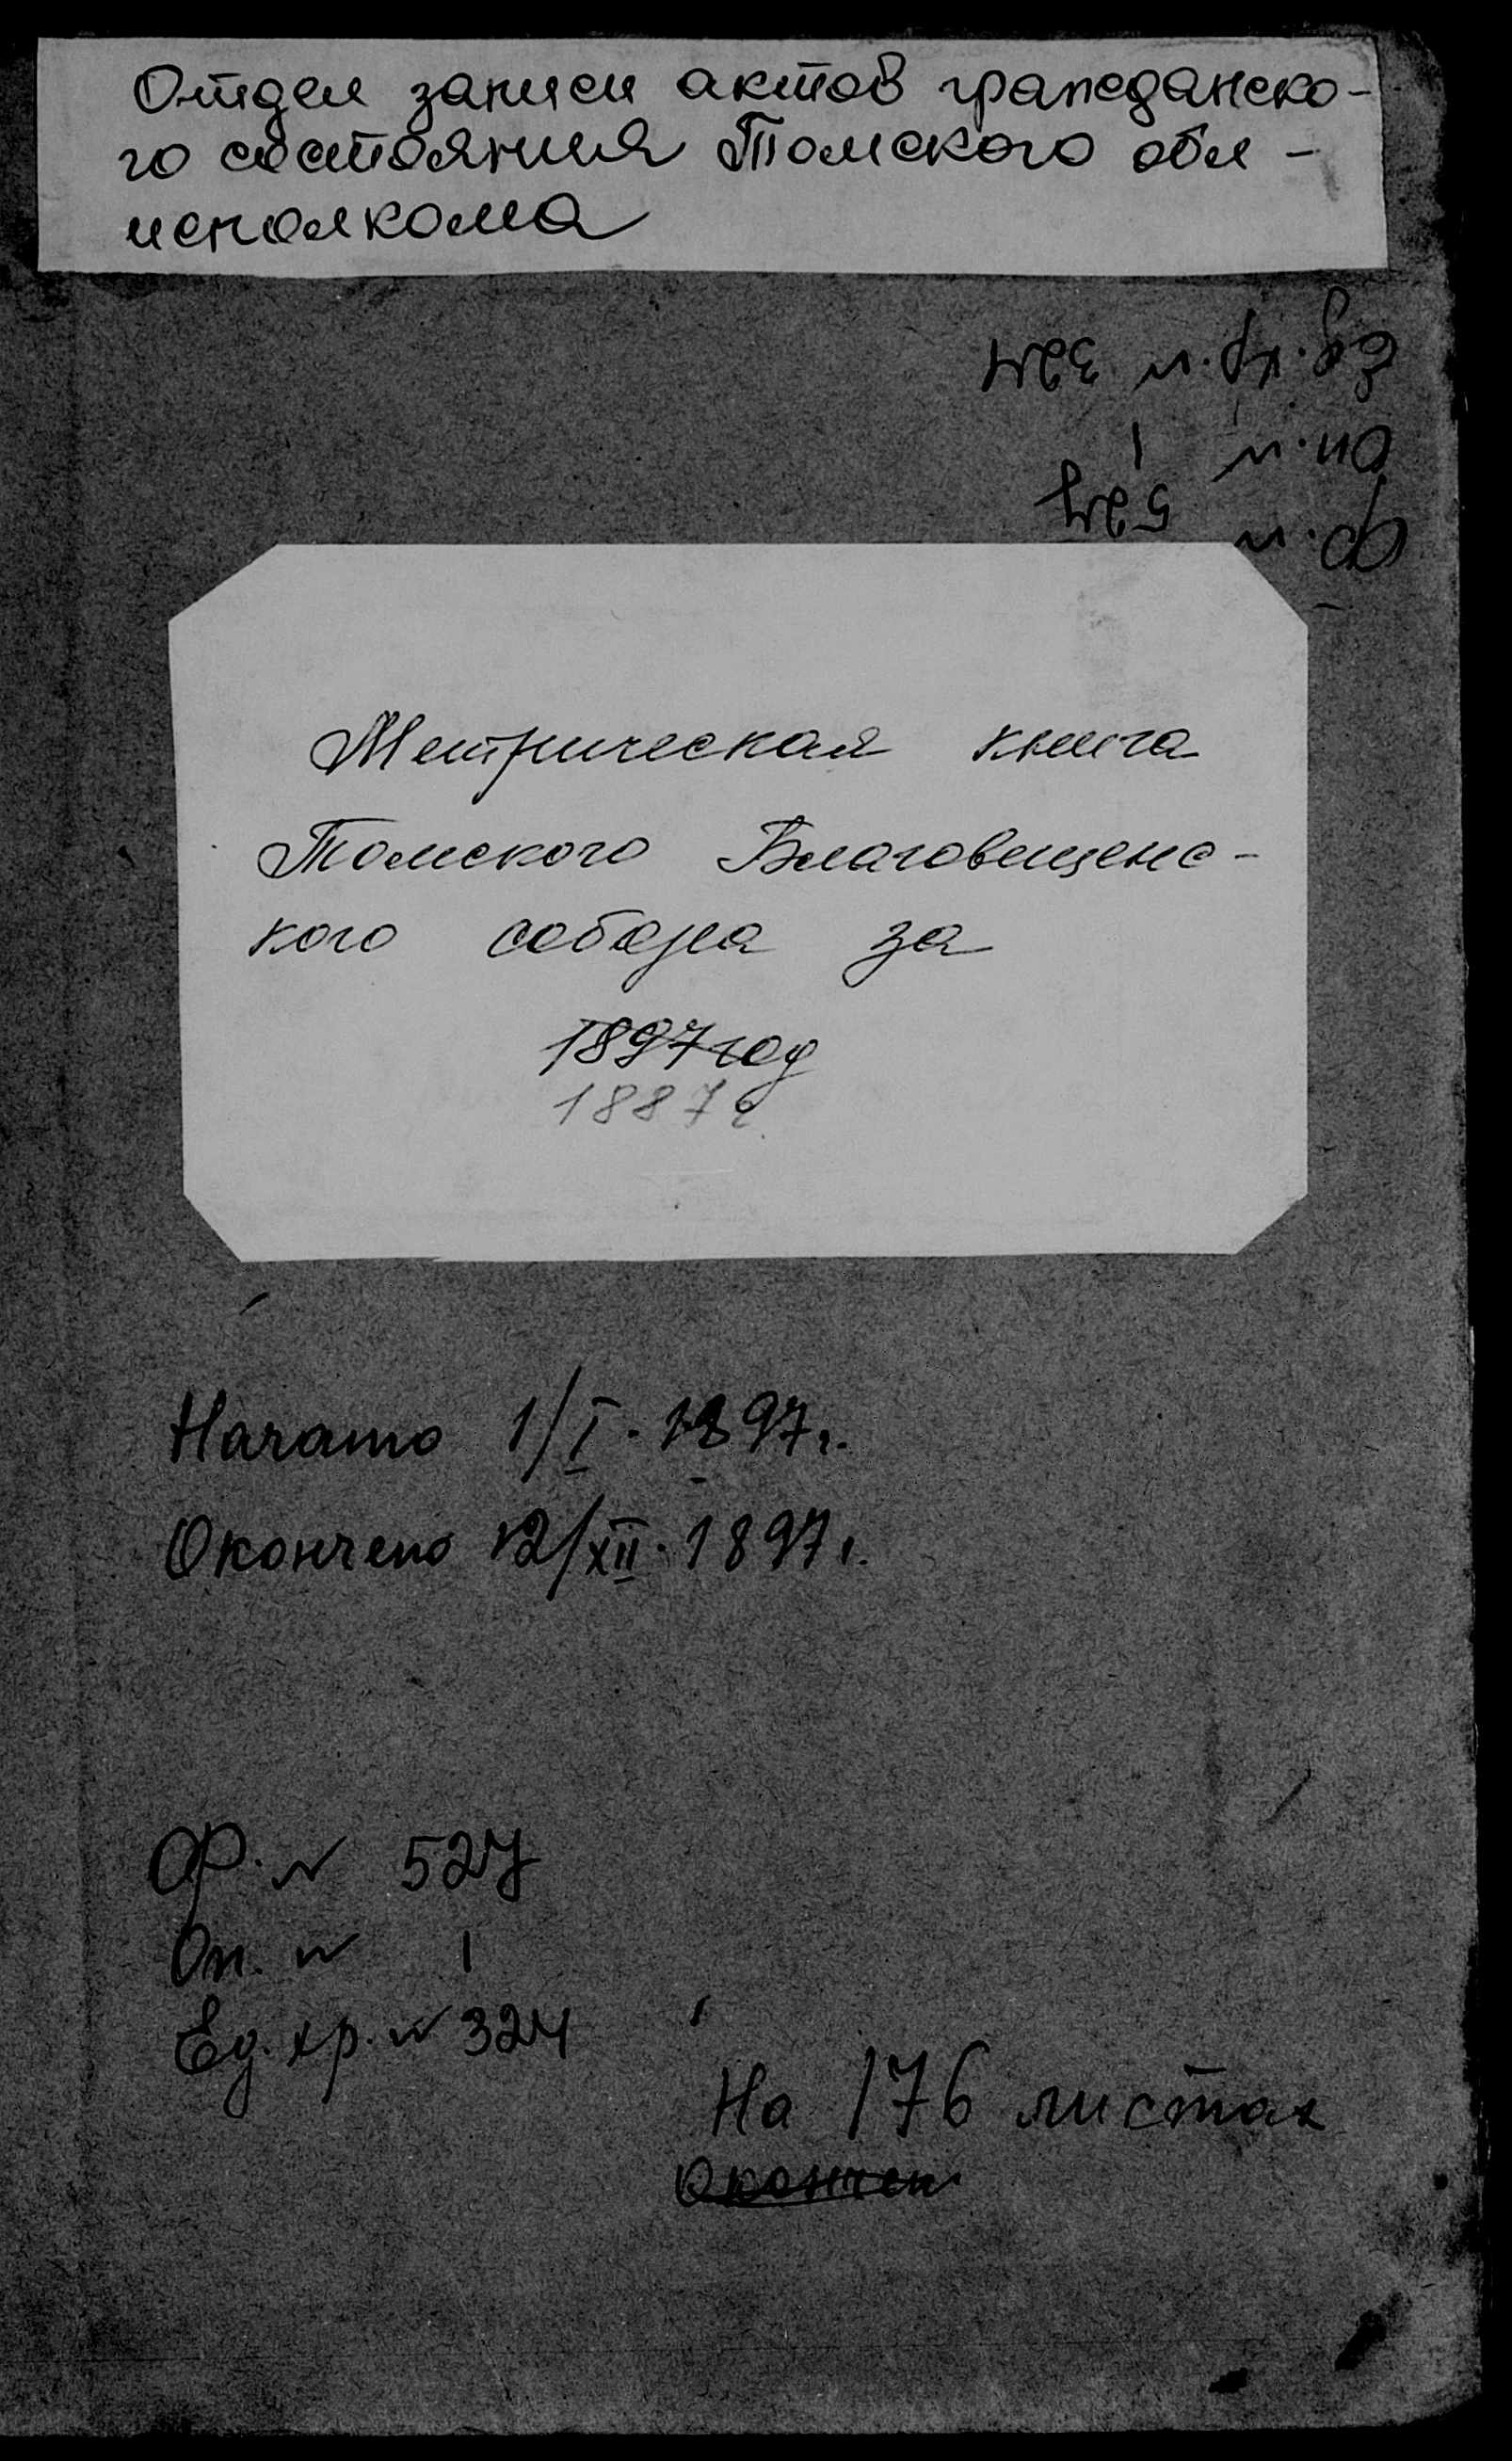 Отдел записи актов гражданско-
го состояния Томского обл-
исполкома
Ед. хр. № 324
Оп. № 1
Ф. № 527
Метрическая книга
Томского Благовещенс-
кого собора за
1897 год
1887 г.
Начато 1/I. 1897 г.
Окончено 12/XII. 1897 г.
Ф. № 527
Оп. № 1
Ед. хр. № 324
На 176 листах
Окончен